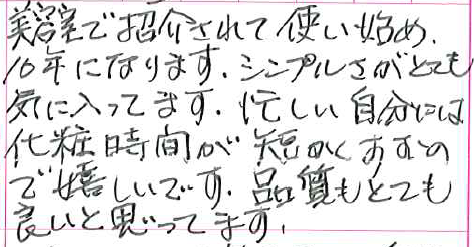 美容室で紹介されて使い始め、
10年になります。シンプルさがとても
気に入ってます。忙しい自分には
化粧時間が短かくすむの
で嬉しいです。品質もとても
良いと思ってます。